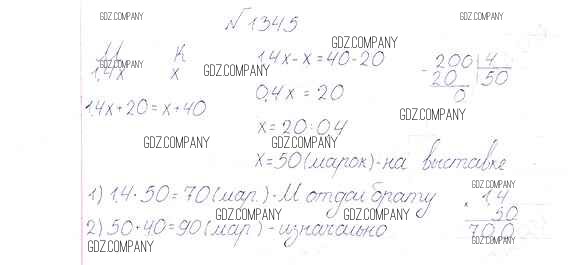 №1345
GDZ.COMPANY GDZ.COMPANY
М К 1,4x-x=40-20 200 | 4
GDZ.COMPANY GDZ.COMPANY GDZ.COMPANY
1,4x x -20 50
0,4x = 20 0
1,4x+20=x+40 GDZ.COMPANY
x=20:0,4
GDZ.COMPANY GDZ.COMPANY GDZ.COMPANY
x=50(марок)-на выставке
1) 1,4·50=70(мар.)-М отдал брату × 1,4
GDZ.COMPANY
50
GDZ.COMPANY GDZ.COMPANY
2) 50+40=90(мар)-изначально 70,0
GDZ.COMPANY GDZ.COMPANY